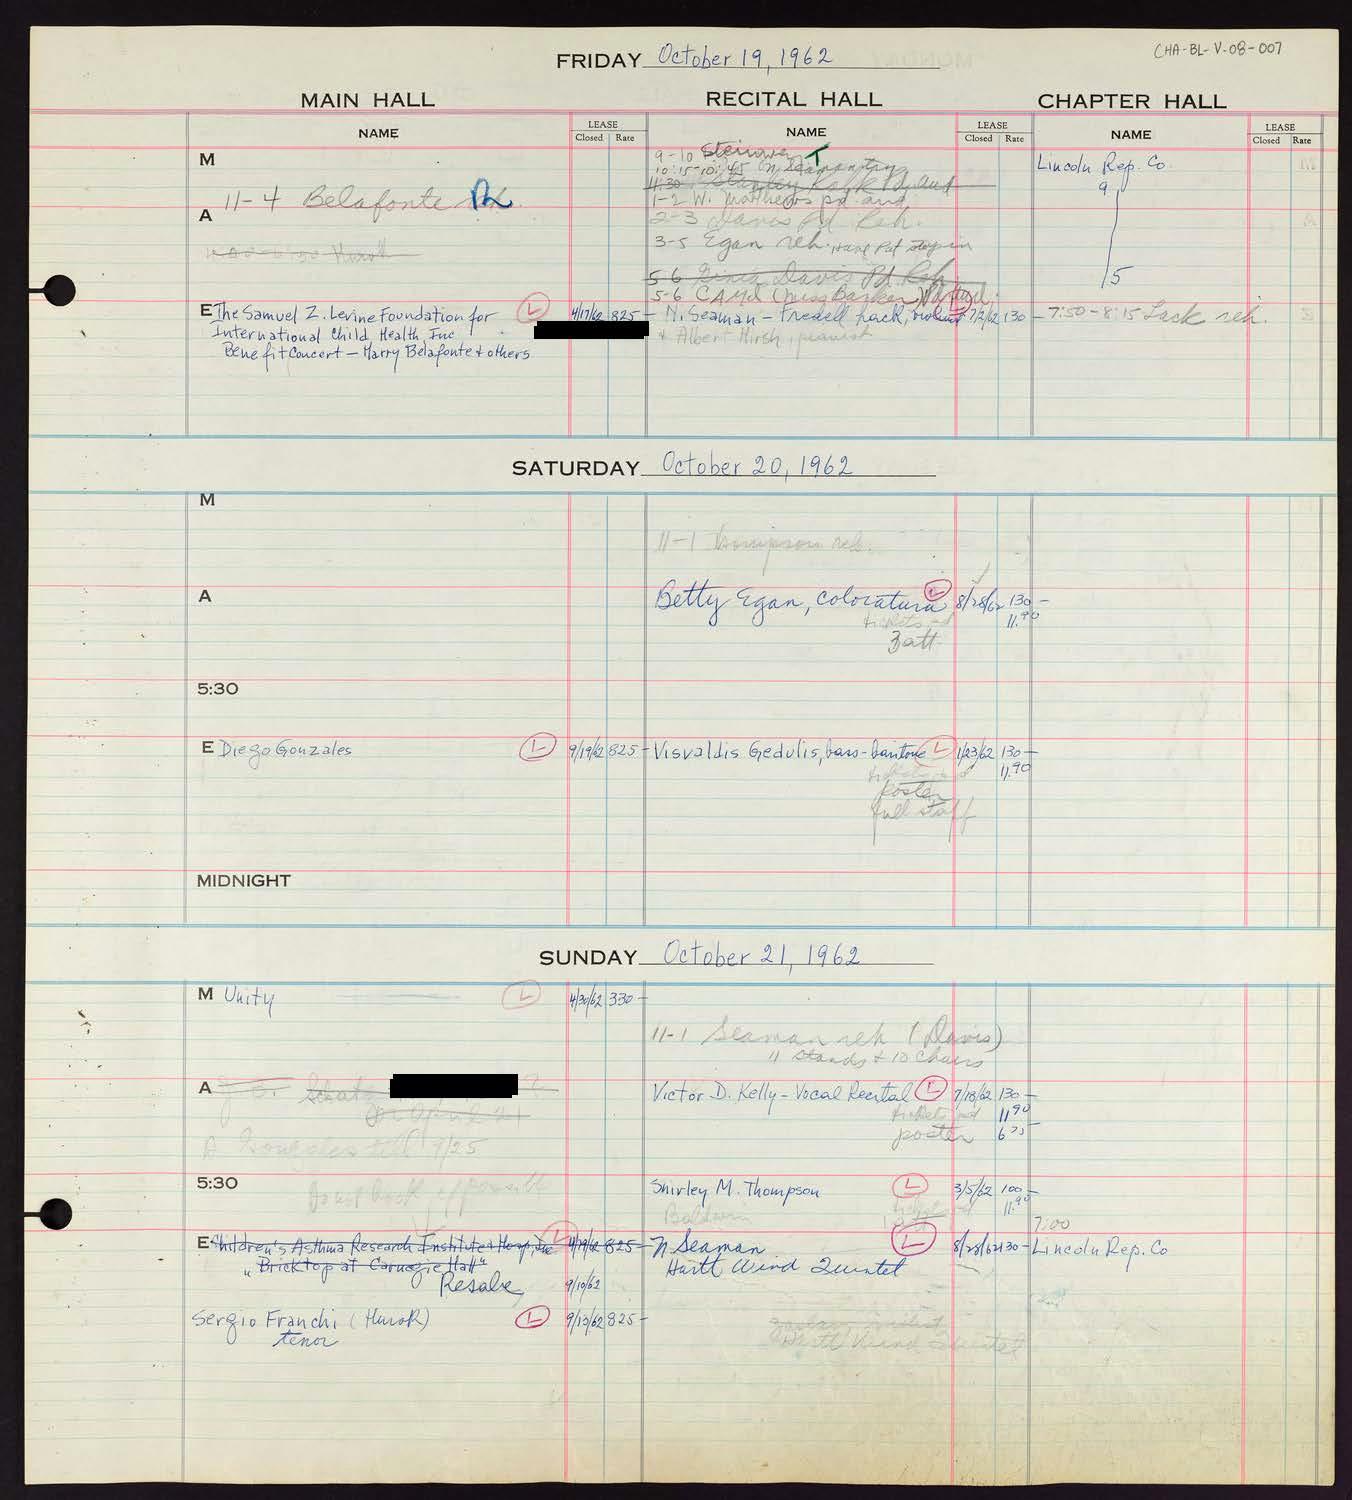 CHA-BL-V-08-007
FRIDAY October 19, 1962
MAIN HALL
RECITAL HALL
CHAPTER HALL
NAME
LEASE
Closed Rate
NAME
LEASE
Closed Rate
NAME
LEASE
Closed Rate
M
9-10 Steinway T
10:15-10:45 N. Seaman try
Lincoln Rep. Co.
9
5
11:30
11-4 Belafonte Rh.
1-2 W. Matthews pd. aud.
A
2-3 Davis Pd Reh.
3-5 Egan reh. Have Pat stay in
5-6 Davis Pd Reh
5-6 CAMI (Miss Barker)
E The Samuel Z. Levine Foundation for L 4/17/62 825-
International Child Health Inc
Benefit Concert - Harry Belafonte & others
N. Seaman - Fredell Lack, violinist 7/2/62 130-
& Albert Hirsh, pianist
7:50-8:15 Lack reh.
SATURDAY October 20, 1962
M
11-1 Thompson reh.
A
Betty Egan, coloratura L 8/28/62 130-
tickets 11.90
3 att.
5:30
E Diego Gonzales L 9/19/62 825-
Visvaldis Gedulis, bass-baritone L 1/23/62 130-
11.90
poster
full staff
MIDNIGHT
SUNDAY October 21, 1962
M Unity L 4/30/62 330-
11-1 Seaman reh (Davis)
11 stands + 10 chairs
A
Victor D. Kelly - Vocal Recital L 7/18/62 130-
tickets 11.90
poster 6.75
Gonzales till 9/25
5:30
Shirley M. Thompson L 3/5/62 100-
11.90
Baldwin
7:00
E Children's Asthma Research Institute & Hosp, Inc L 4/19/62 825-
"Bricktop at Carnegie Hall"
Resale 9/10/62
N Seaman L 8/28/62 130-
Hartt Wind Quintet
Lincoln Rep. Co
Sergio Franchi (Hurok) L 9/13/62 825-
tenor
Hartt Wind Quintet